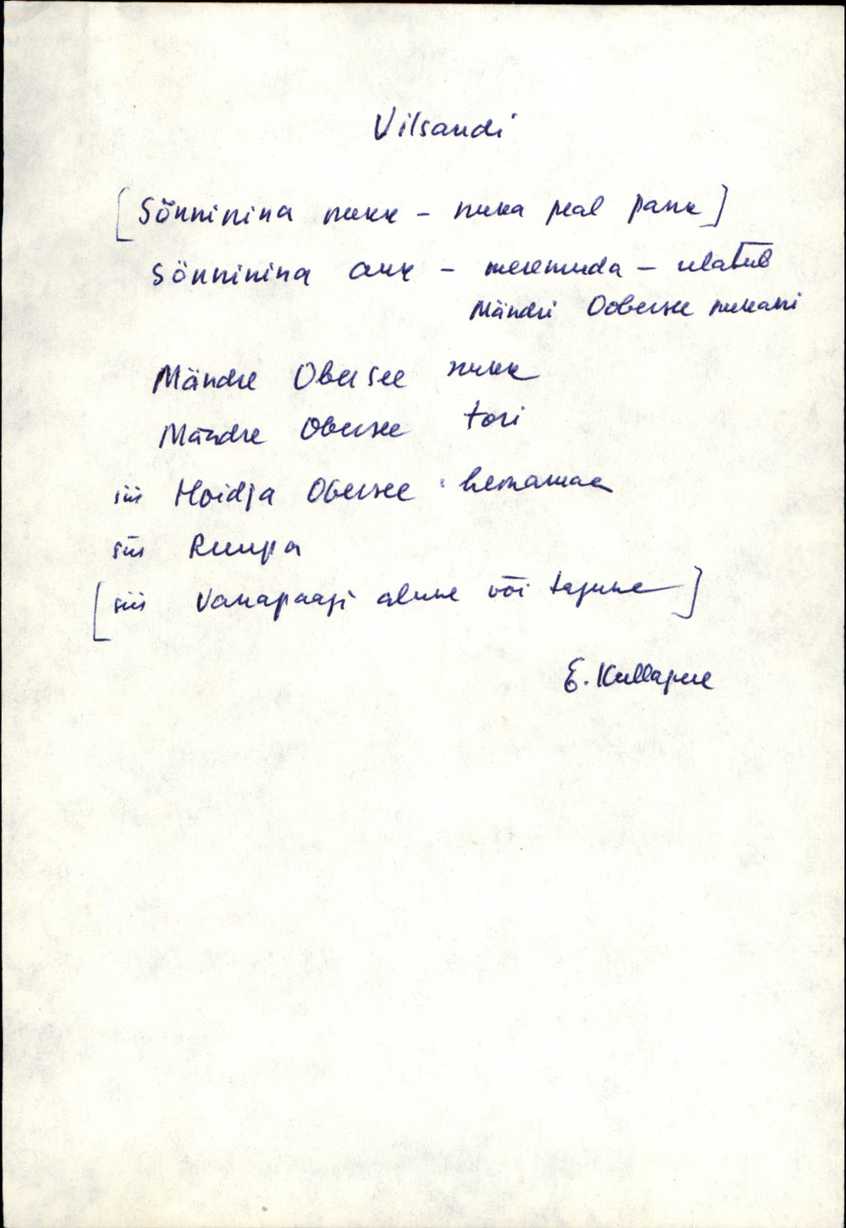 Vilsandi
[Sõnninina nukk - nuka peal pank]
Sõnninina auk - meremuda - ulatub
Mändri Oobersee nukani
Mändre Obersee nukk
Mändre Obersee tori
siis Hoidja Obersee heinamaa
siis Ruupa
[siis Vanapaagi alune või tagune]
E. Kullapere